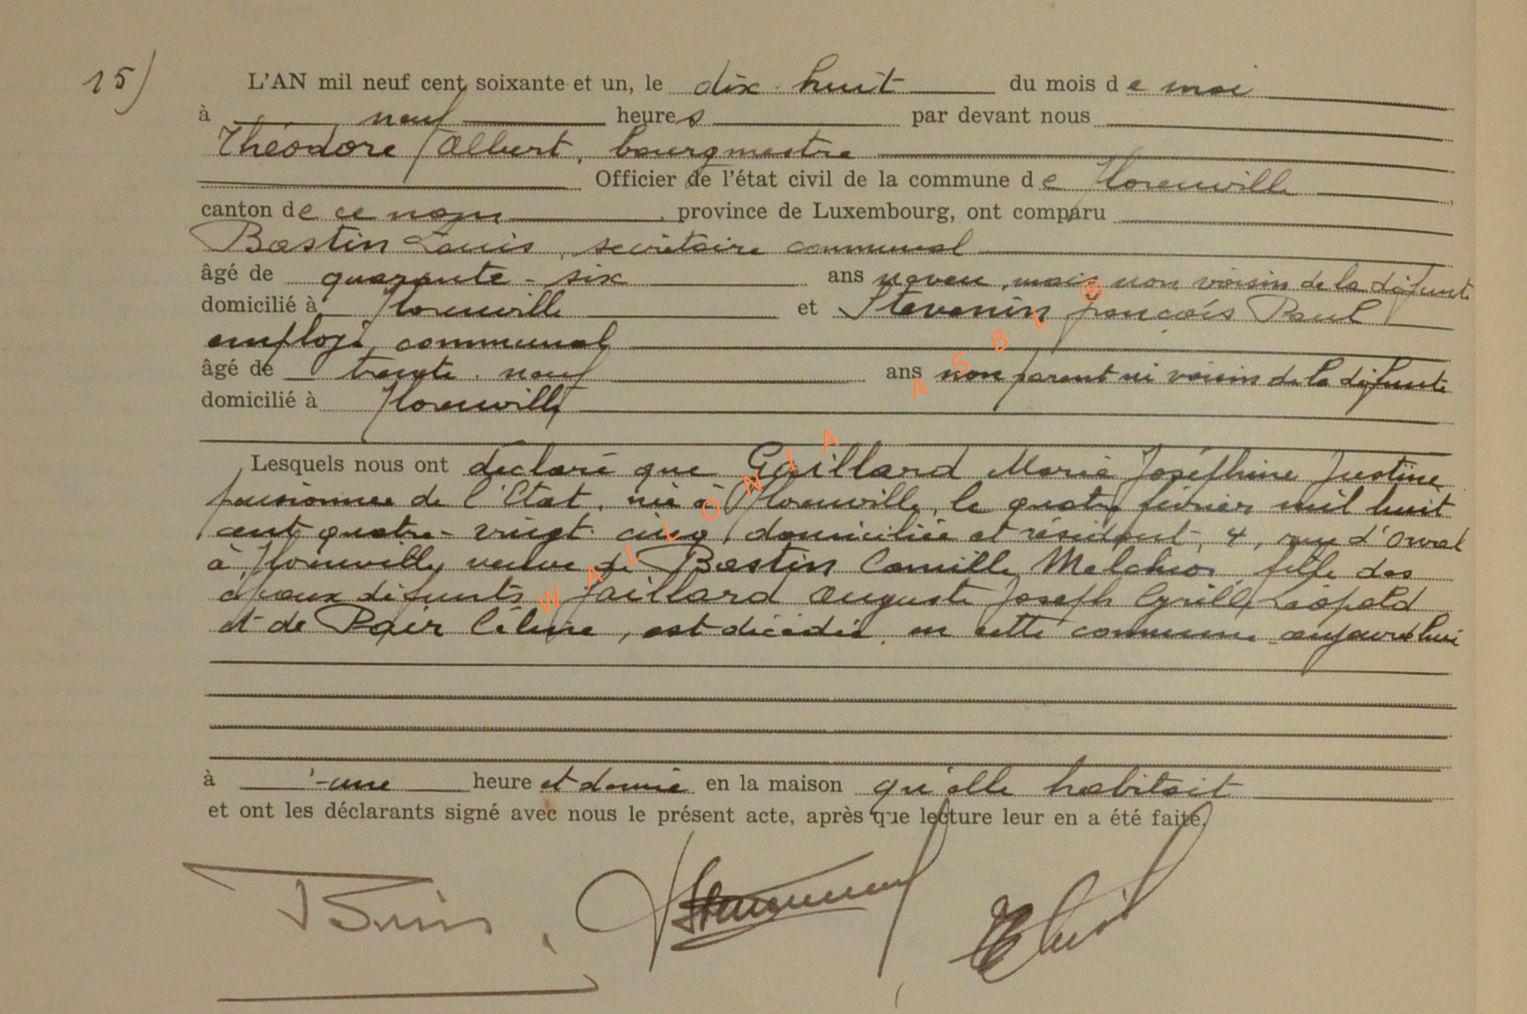 15)
L'AN mil neuf cent soixante et un, le dix-huit du mois de mai
à neuf heures par devant nous
Théodore Albert, bourgmestre
Officier de l'état civil de la commune de Florenville
canton de ce nom, province de Luxembourg, ont comparu
Bastin Louis, secrétaire communal
âgé de quarante-six ans neveu, mais non voisin de la défunte
domicilié à Florenville et Stevenin françois Paul
employé communal
âgé de trente-neuf ans non parent ni voisin de la défunte
domicilié à Florenville
Lesquels nous ont déclaré que Gaillard Maria Joséphine Justine
pensionnée de l'Etat, née à Florenville, le quatre février mil huit
cent quatre-vingt cinq, domiciliée et résidant, 4, rue d'Orval
à Florenville, veuve de Bastin Camille Melchior, fille des
époux défunts Gaillard Auguste Joseph Cyrille Léopold
et de Céline, est décédée en cette commune aujourd'hui
à une heure et demie en la maison qu'elle habitait
et ont les déclarants signé avec nous le présent acte, après que lecture leur en a été faite.
WALLONIA ASBL ©